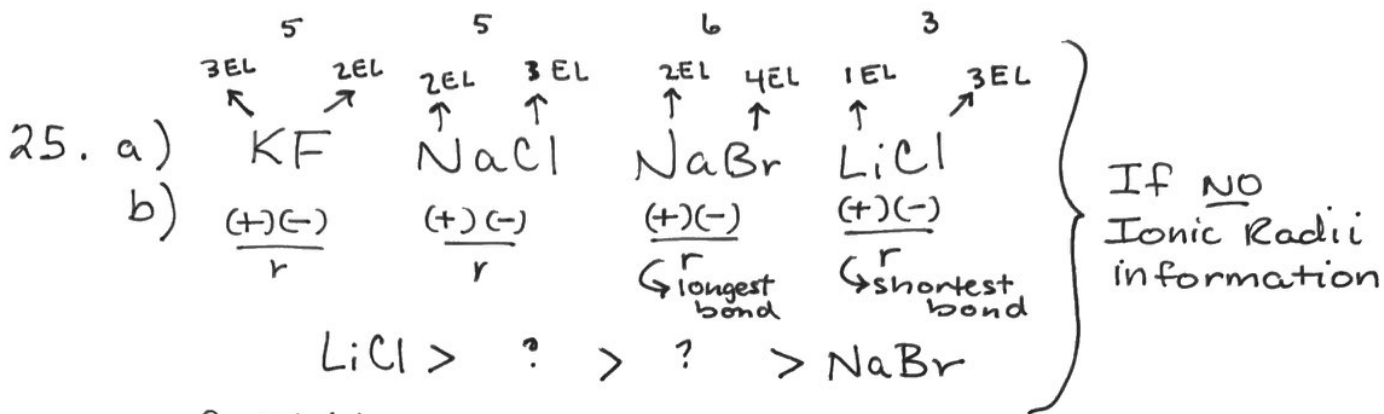 5 5 6 3
3EL 2EL 2EL 3EL 2EL 4EL 1EL 3EL
25. a) KF NaCl NaBr LiCl
b) (+)(-) (+)(-) (+)(-) (+)(-)
r r r r
longest bond shortest bond
LiCl > ? > ? > NaBr
If NO
Ionic Radii
information